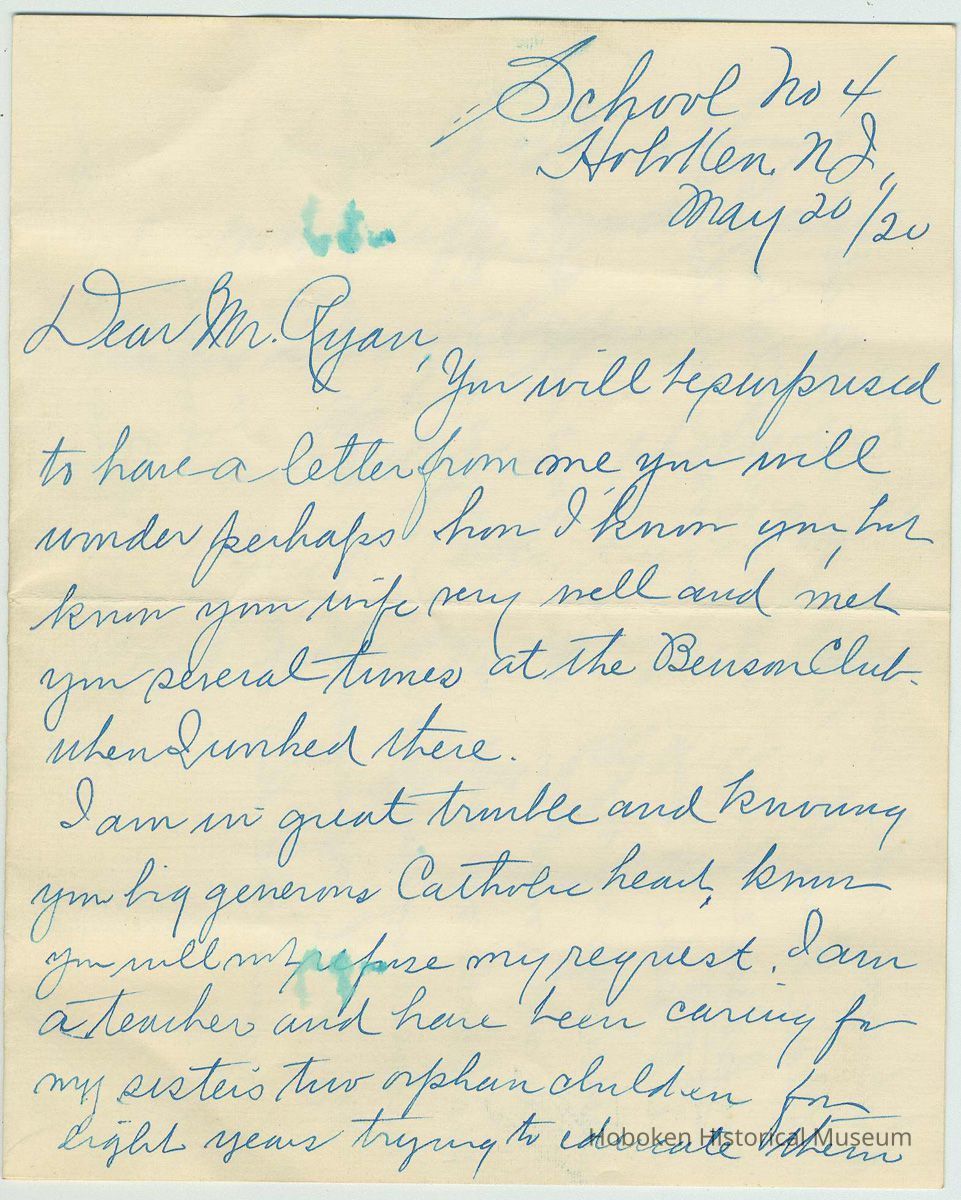 School No 4
Hoboken, N.J.,
May 20/20
Dear Mr. Ryan,
You will be surprised
to have a letter from me you will
wonder perhaps how I know you, but
know your wife very well and met
you several times at the Benson Club-
when I worked there.
I am in great trouble and knowing
your big generous Catholic heart, know
you will not refuse my request. I am
a teacher and have been caring for
my sister's two orphan children for
eight years trying to educate them
Hoboken Historical Museum